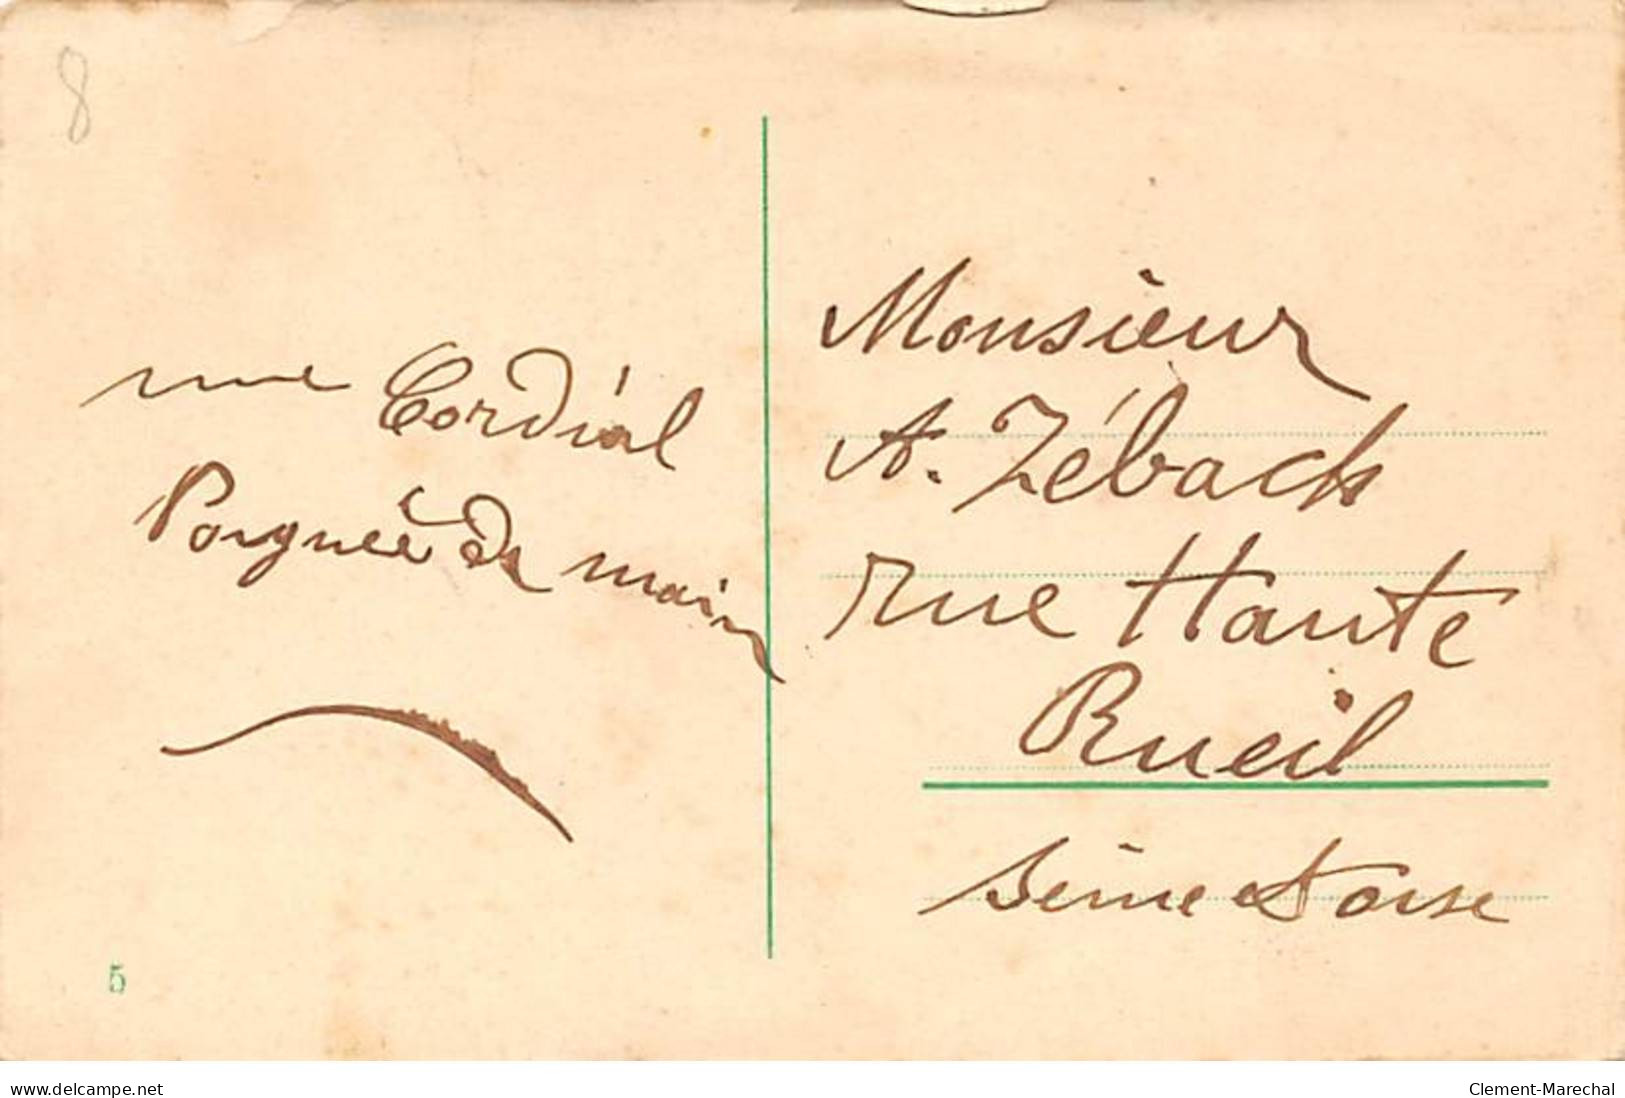 8
une Cordial
Poignée de main
Monsieur
A. Zéback
rue Haute
Rueil
Seine et Oise
5
www.delcampe.net
Clement-Marechal